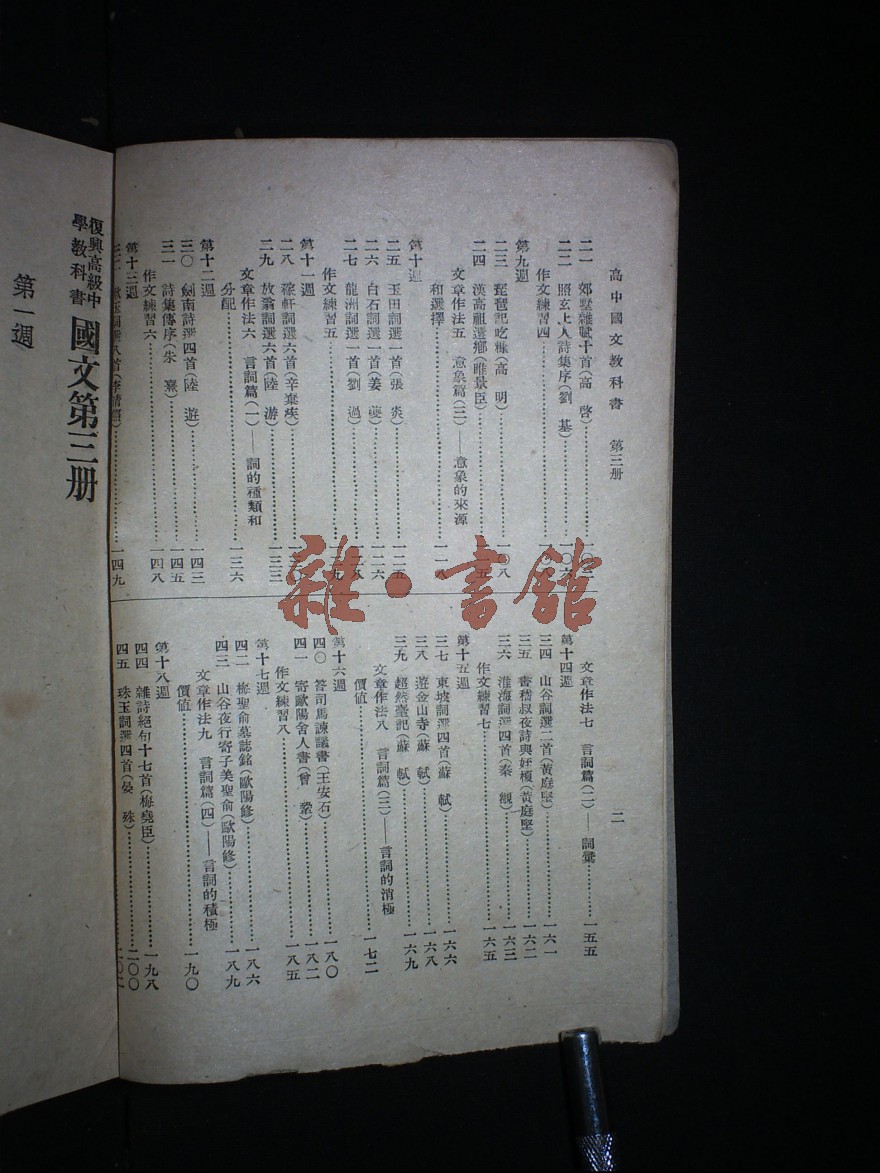 高中國文教科書 第三册 二
二一 郊墅雜賦十首(高 啓)
二二 照玄上人詩集序(劉 基)
作文練習四
第九週
二三 琵琶記吃糠(高 明)
二四 漢高祖還鄉(睢景臣)
文章作法五 意象篇(三)——意象的來源
和選擇 一一八
第十週
二五 玉田詞選一首(張 炎) 一二五
二六 白石詞選一首(姜 夔) 一二六
二七 龍洲詞選一首(劉 過)
作文練習五
第十一週
二八 稼軒詞選六首(辛棄疾)
二九 放翁詞選六首(陸 游) 一三三
文章作法六 言詞篇(一)——詞的種類和
分配 一三六
第十二週
三〇 劍南詩選四首(陸 游) 一四三
三一 詩集傳序(朱 熹) 一四五
作文練習六 一四八
第十三週
一四九
文章作法七 言詞篇(二)——詞彙 一五五
第十四週
三四 山谷詞選二首(黃庭堅) 一六一
三五 書嵇叔夜詩與姪榎(黃庭堅) 一六二
三六 淮海詞選四首(秦 觀) 一六三
作文練習七 一六五
第十五週
三七 東坡詞選四首(蘇 軾) 一六六
三八 遊金山寺(蘇 軾) 一六八
三九 超然臺記(蘇 軾) 一六九
文章作法八 言詞篇(三)——言詞的消極
價值 一七二
第十六週
四〇 答司馬諫議書(王安石) 一八〇
四一 寄歐陽舍人書(曾 鞏) 一八二
作文練習八 一八五
第十七週
四二 梅聖俞墓誌銘(歐陽修) 一八六
四三 山谷夜行寄子美聖俞(歐陽修) 一八九
文章作法九 言詞篇(四)——言詞的積極
價值 一九〇
第十八週
四四 雜詩絕句十七首(梅堯臣) 一九八
四五 珠玉詞選四首(晏 殊) 二〇〇
復興高級中學教科書 國文第三册
第一週
雜·書館